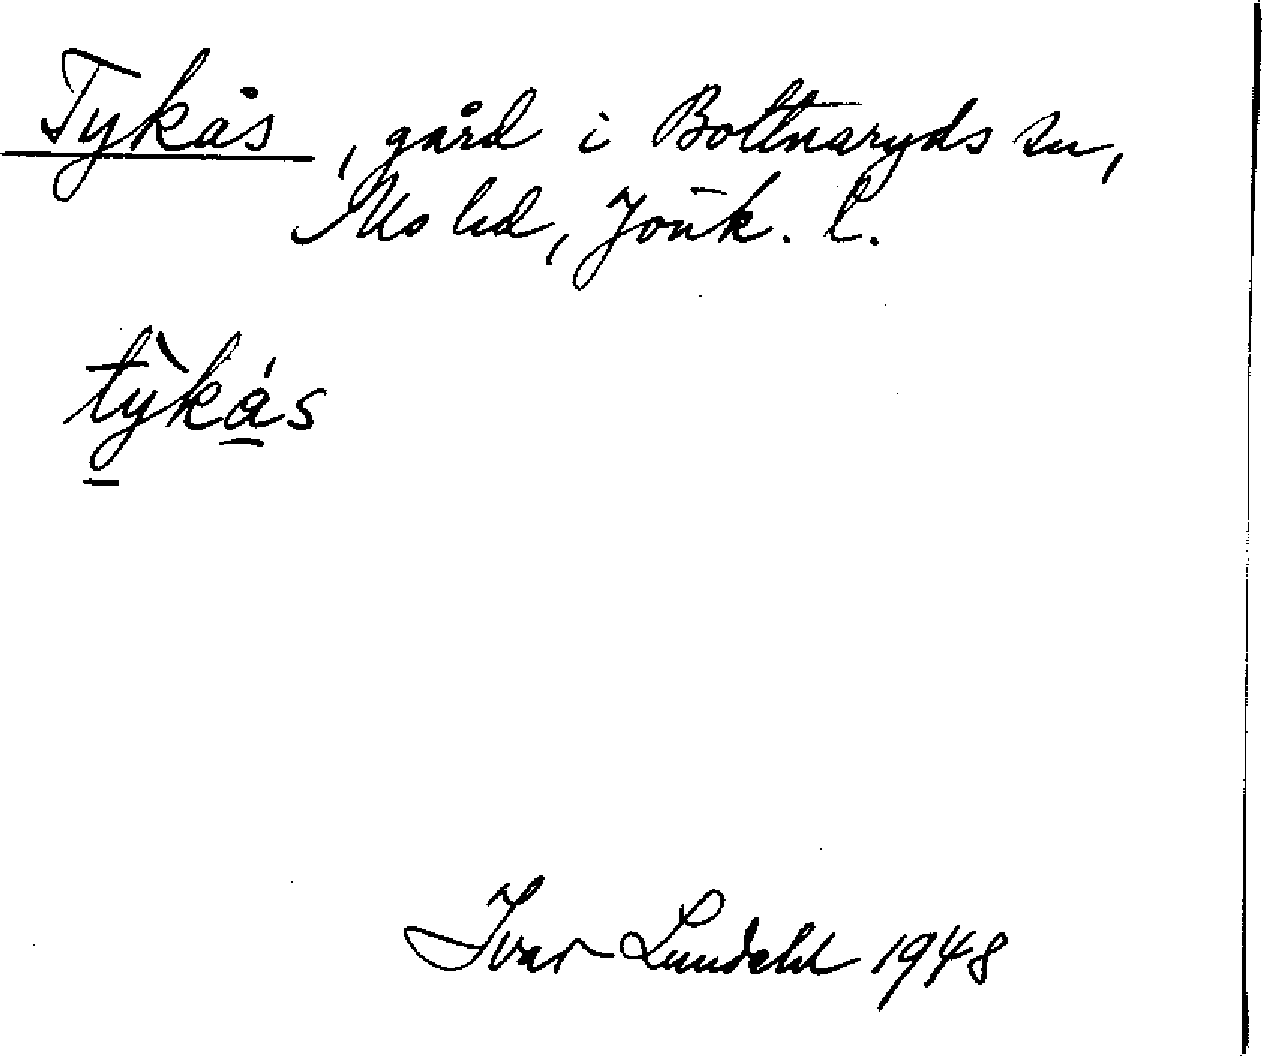 Tykås, gård i Bottnaryds sn,
Mo hd, Jönk. l.
tỳkás
Ivar Lundahl 1948